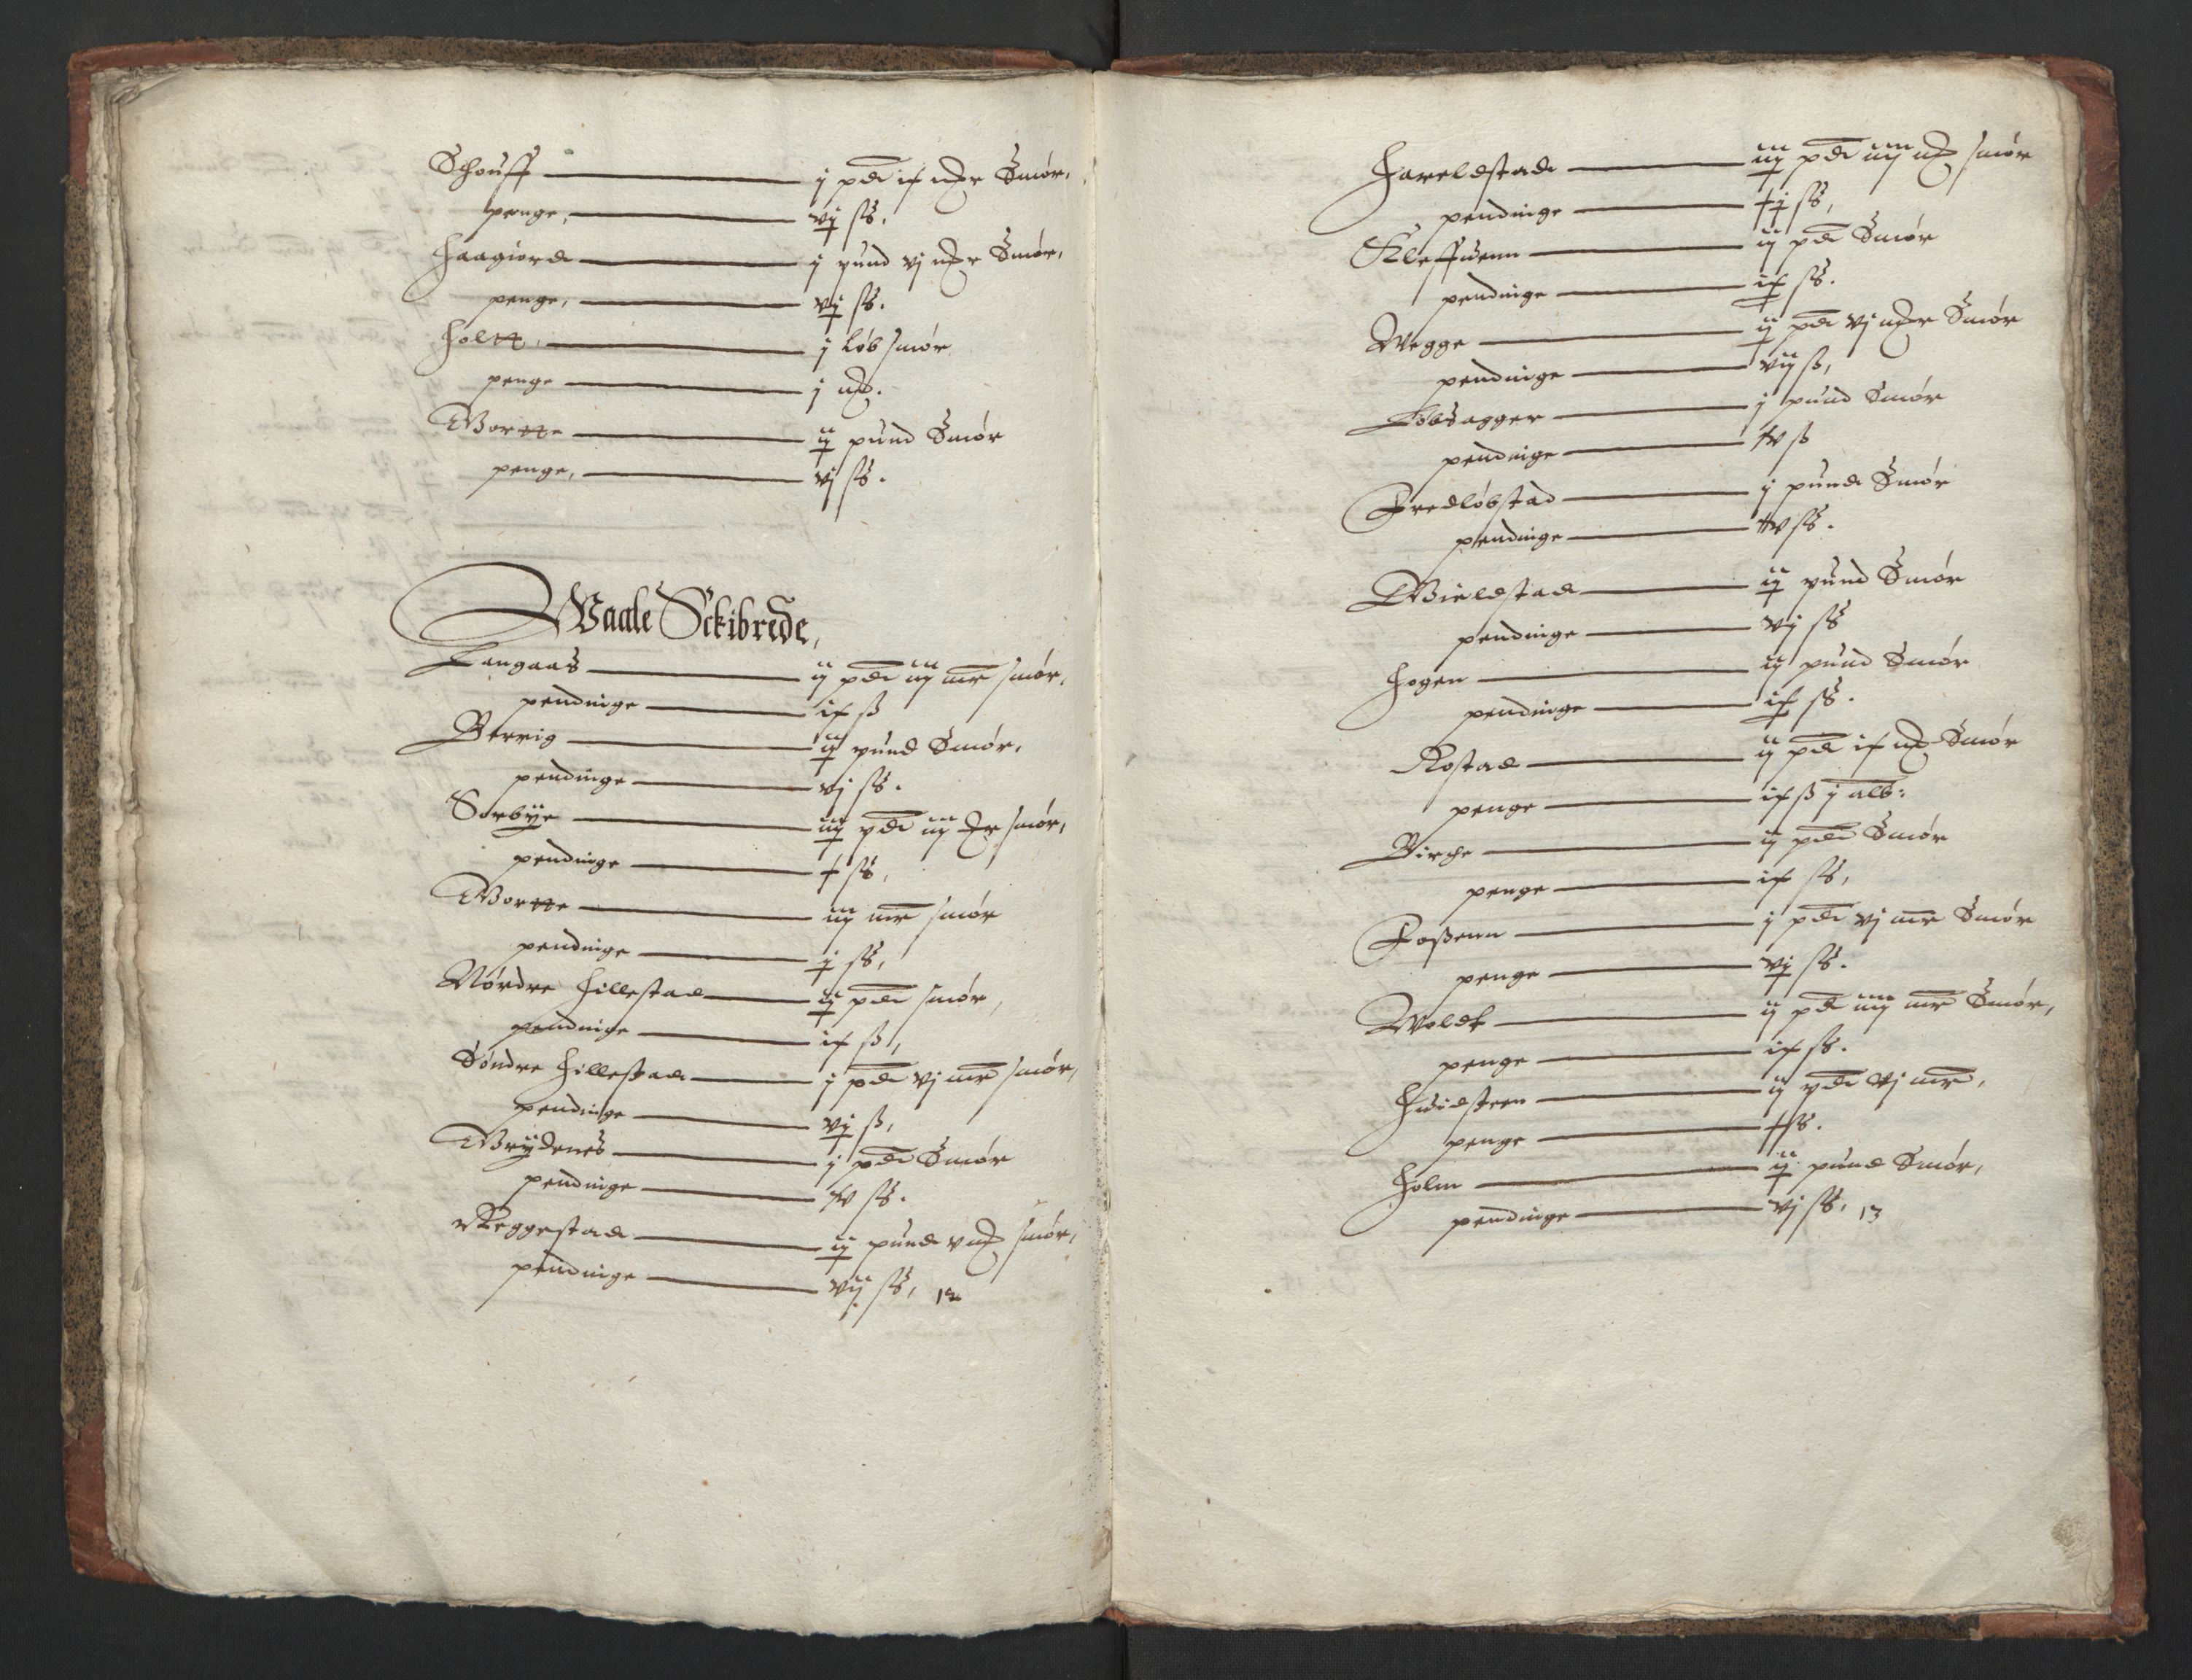 Schouff — j pd ix mkr Smør,
penge, — vij ss.
Haagiord — j pund vj mkr Smør,
penge, — vij ss.
Holtt, — j Løb smør
penge — j mk.
Wortte — ij pund Smør
penge, — vj ss.
Waale Sckibrede,
Langaas — ij pd iij mr smør,
pendinge — ix ss
Berrig — ij pund Smør,
pendinge — vj ss.
Sorbÿe — iij pd iij mr smør,
pendinge — x ss,
Wortte — iij mr smør
pendinge — j ss,
Nørdre Hillestad — ij pd smør,
pendinge — ix ss,
Søndre Hillestad — j pd vj mr smør,
pendinge — vij ss,
Wrÿdenes — j pd Smør
pendinge — iv ss.
Reggestad — ij pund v mk smør,
pendinge — vij ss, 12
Hareldstad — iij pd iiij mk smør
pendinge — xij ss,
Kleffuenn — ij pd Smør
pendinge — ix ss.
Wegge — ij pd vj mkr Smør
pendinge — viij ss,
Løbsagger — j pund Smør
pendinge — iv ss
Fredløbstad — j pund Smør
pendinge — iv ss.
Wieldstad — ij pund Smør
pendinge — vij ss
Hogen — ij pund Smør
pendinge — ix ss.
Rostad — ij pd ix mk Smør
penge — ix ss j alb:
Birche — ij pd Smør
penge — ix ss,
Foßenn — j pd vj mr Smør
penge — vij ss.
Woldt — ij pd iiij mr Smør,
penge — ix ss.
Huidsteen — ij pd vj mr,
penge — x ss.
Holm — ij pund Smør,
pendinge — vj ss, 13